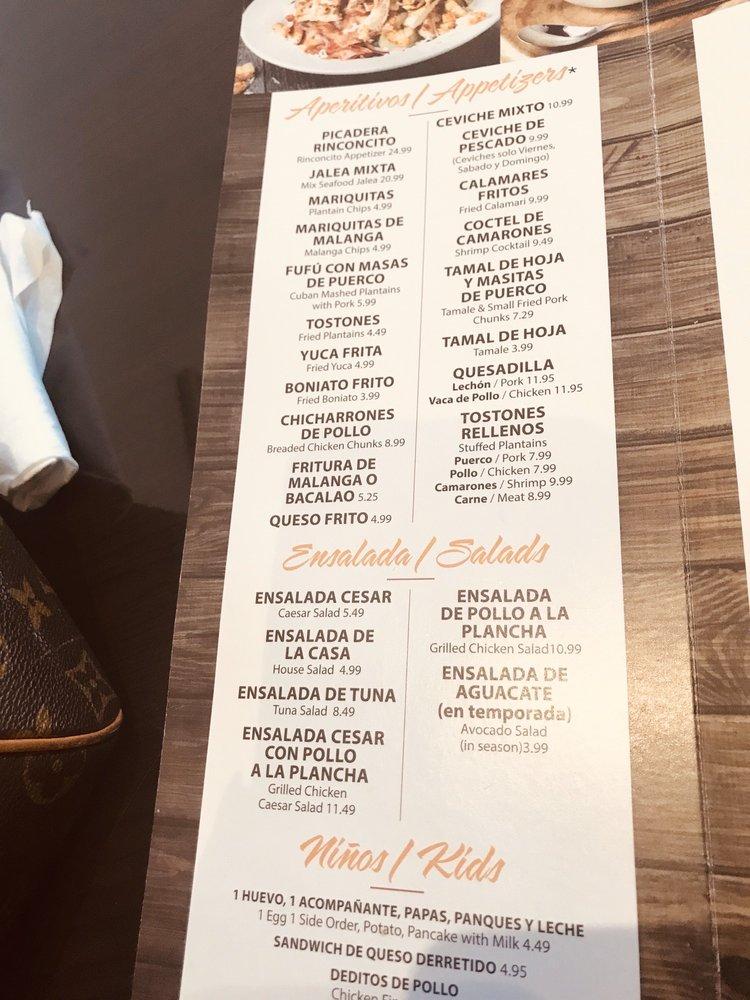 Aperitivos / Appetizers*
PICADERA
RINCONCITO
Rinconcito Appetizer 24.99
JALEA MIXTA
Mix Seafood Jalea 20.99
MARIQUITAS
Plantain Chips 4.99
MARIQUITAS DE
MALANGA
Malanga Chips 4.99
FUFÚ CON MASAS
DE PUERCO
Cuban Mashed Plantains
with Pork 5.99
TOSTONES
Fried Plantains 4.49
YUCA FRITA
Fried Yuca 4.99
BONIATO FRITO
Fried Boniato 3.99
CHICHARRONES
DE POLLO
Breaded Chicken Chunks 8.99
FRITURA DE
MALANGA O
BACALAO 5.25
QUESO FRITO 4.99
CEVICHE MIXTO 10.99
CEVICHE DE
PESCADO 9.99
(Ceviches solo Viernes,
Sabado y Domingo)
CALAMARES
FRITOS
Fried Calamari 9.99
COCTEL DE
CAMARONES
Shrimp Cocktail 9.49
TAMAL DE HOJA
Y MASITAS
DE PUERCO
Tamale & Small Fried Pork
Chunks 7.29
TAMAL DE HOJA
Tamale 3.99
QUESADILLA
Lechón / Pork 11.95
Vaca de Pollo / Chicken 11.95
TOSTONES
RELLENOS
Stuffed Plantains
Puerco / Pork 7.99
Pollo / Chicken 7.99
Camarones / Shrimp 9.99
Carne / Meat 8.99
Ensalada / Salads
ENSALADA CESAR
Caesar Salad 5.49
ENSALADA DE
LA CASA
House Salad 4.99
ENSALADA DE TUNA
Tuna Salad 8.49
ENSALADA CESAR
CON POLLO
A LA PLANCHA
Grilled Chicken
Caesar Salad 11.49
ENSALADA
DE POLLO A LA
PLANCHA
Grilled Chicken Salad10.99
ENSALADA DE
AGUACATE
(en temporada)
Avocado Salad
(in season)3.99
Niños / Kids
1 HUEVO, 1 ACOMPAÑANTE, PAPAS, PANQUES Y LECHE
1 Egg 1 Side Order, Potato, Pancake with Milk 4.49
SANDWICH DE QUESO DERRETIDO 4.95
DEDITOS DE POLLO
Chicken